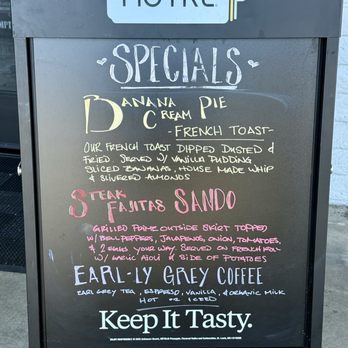 SPECIALS
BANANA
CREAM PIE
- FRENCH TOAST -
OUR FRENCH TOAST DIPPED DUSTED &
FRIED SERVED W/ VANILLA PUDDING
SLICED BANANAS, HOUSE MADE WHIP
& SLIVERED ALMONDS
STEAK
FAJITAS SANDO
GRILLED PRIME OUTSIDE SKIRT TOPPED
W/ BELL PEPPERS, JALAPENOS, ONION, TOMATOES
& 2 EGGS YOUR WAY. SERVED ON FRENCH ROLL
W/ GARLIC AIOLI & SIDE OF POTATOES
EARL-LY GREY COFFEE
EARL GREY TEA, ESPRESSO, VANILLA, & ORGANIC MILK
HOT OR ICED
Keep It Tasty.